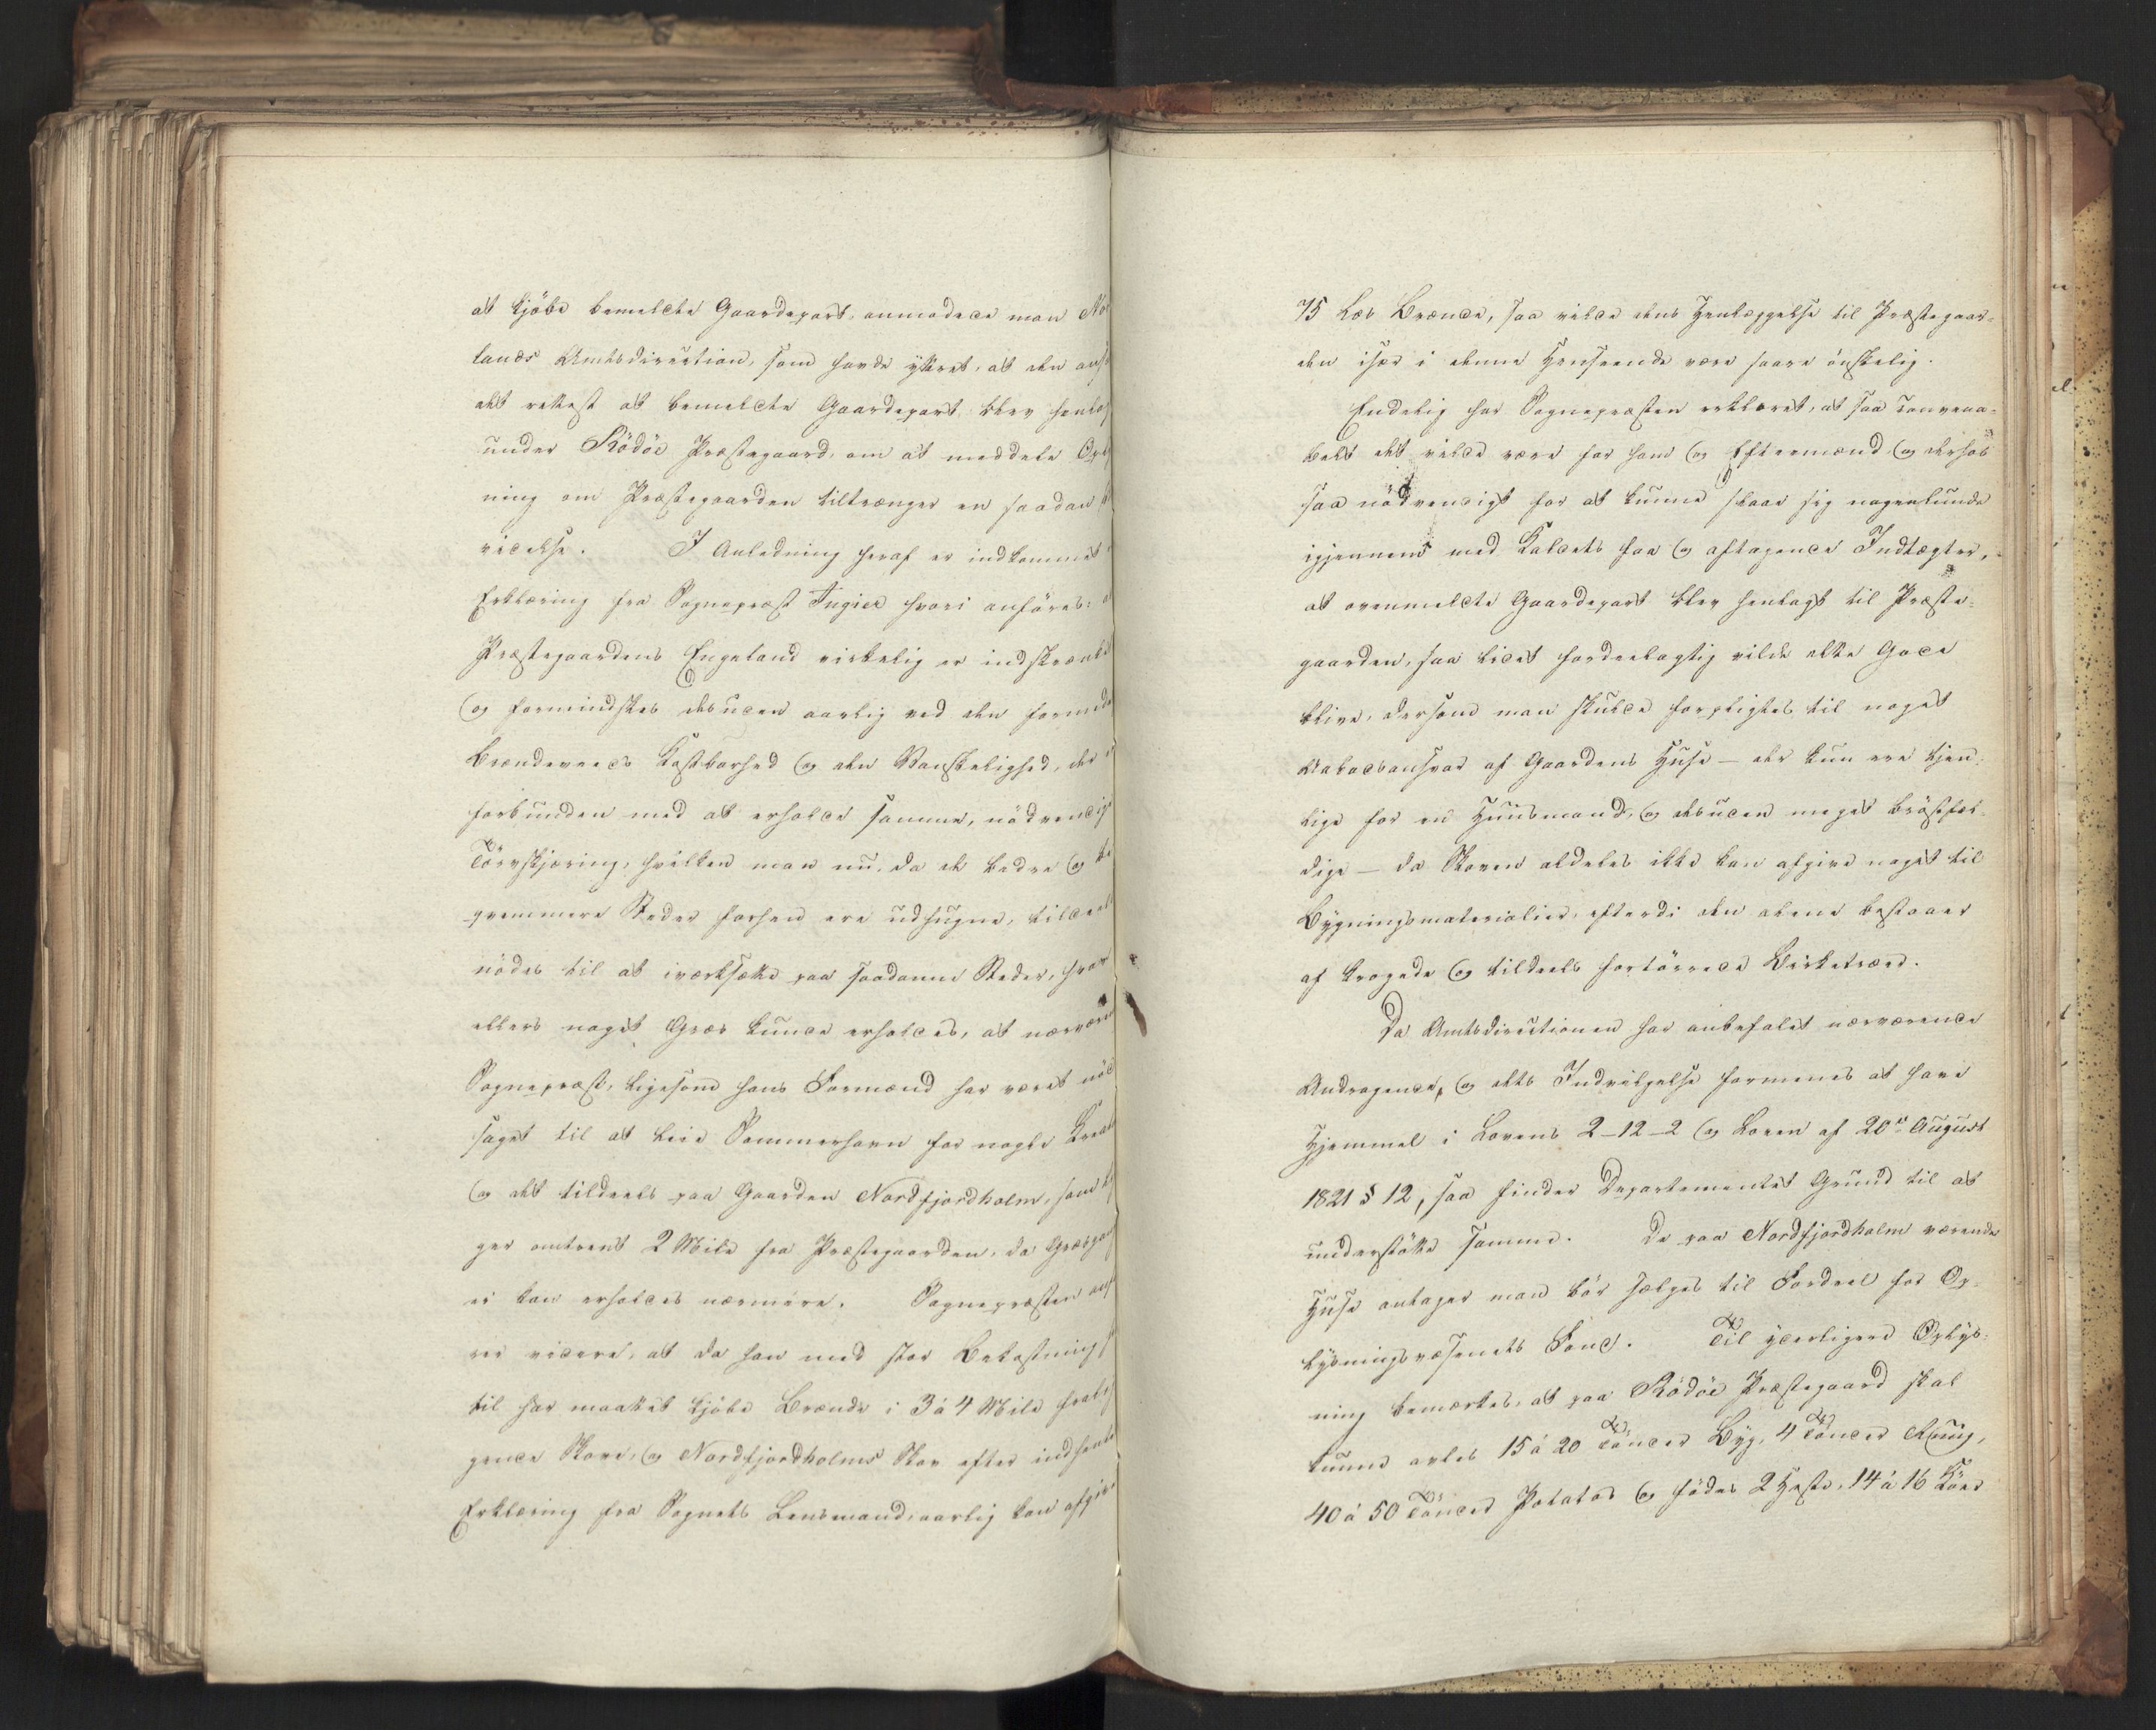 at kjöbe bemeldte Gaardepart, anmodede man Nor
lands Amtsdirection, som havde yttret, at den ansaa
det rettest at bemeldte Gaardepart blev henlag
under Rödöe Præstegaard, om at meddele Oply
ning om Præstegaarden tiltrænger en saadan
videlse. I Anledning heraf er indkommet
Erklæring fra Sognepræst Angiel hvori anföres:
Præstegaardens Engeland virkelig er indskrænket
og formindskes desuden aarlig ved den formed
Brændeveeds Kostbarhed og den Vanskelighed, der
forbunden med at erholde samme, nödvendig
Törvskjæring, hvilken man nu, da de bedre og be
qvemmere Steder forhen ere udhugne, tildeels
nödes til at iværksætte paa saadanne Steder, hvor
ellers noget Græs kunde erholdes, at nærvære
Sognepræst, ligesom hans Formænd har været nöd
saget til at leie Sommerhavn for nogle Kreat
og det tildeels paa Gaarden Nordfjordholm, som lig
ger omtrent 2 Mile fra Præstegaarden, da Græsgang
ei kan erholdes nærmere. Sognepræsten anf
rer videre, at da han med stor Bekostning
til har maattet kjöbe Brænde i 3 á 4 Mile fralig
gende Skove, og Nordfjordholms Skov efter indhente
Erklæring fra Sognets Lensmand, aarlig kan afgive
75 Læs Brænde, saa vilde dens Henlæggelse til Præstegaar-
den især i denne Henseende være saare önskelig.
Endelig har Sognepræsten erklæret, at saa convena-
belt det vilde være for ham og Eftermænd, og derhos
saa nödvendigt for at kunne slaae sig nogenlunde
igjennem med Kaldets faa og aftagende Indtægter,
at ovenmeldte Gaardepart blev henlagt til Præste-
gaarden, saa lidet fordeelagtig vilde dette Gode
blive, dersom man skulde forpligtes til noget
Aabodsansvar af Gaardens Huse – der kun ere tjen-
lige for en Huusmand, og desuden meget bröstfæl-
dige – da Skoven aldeles ikke kan afgive noget til
Bygningsmaterialier, efterdi den alene bestaaer
af krogede og tildeels fortörrede Birketræer.
Da Amtsdirectionen har anbefalet nærværende
Andragende, og dets Indvilgelse formenes at have
Hjemmel i Lovens 2-12-2 og Loven af 20de August
1821 § 12, saa finder Departementet Grund til at
understötte samme. De paa Nordfjordholm værende
Huse antager man bör sælges til Fordeel for Op-
lysningsvæsenets Fond. Til yderligere Oplys-
ning bemærkes, at paa Rödöe Præstegaard skal
kunne avles 15 á 20 Tönder Byg, 4 Tönder Ruug,
40 á 50 Tönder Potatos og födes 2 Heste, 14 á 16 Köer